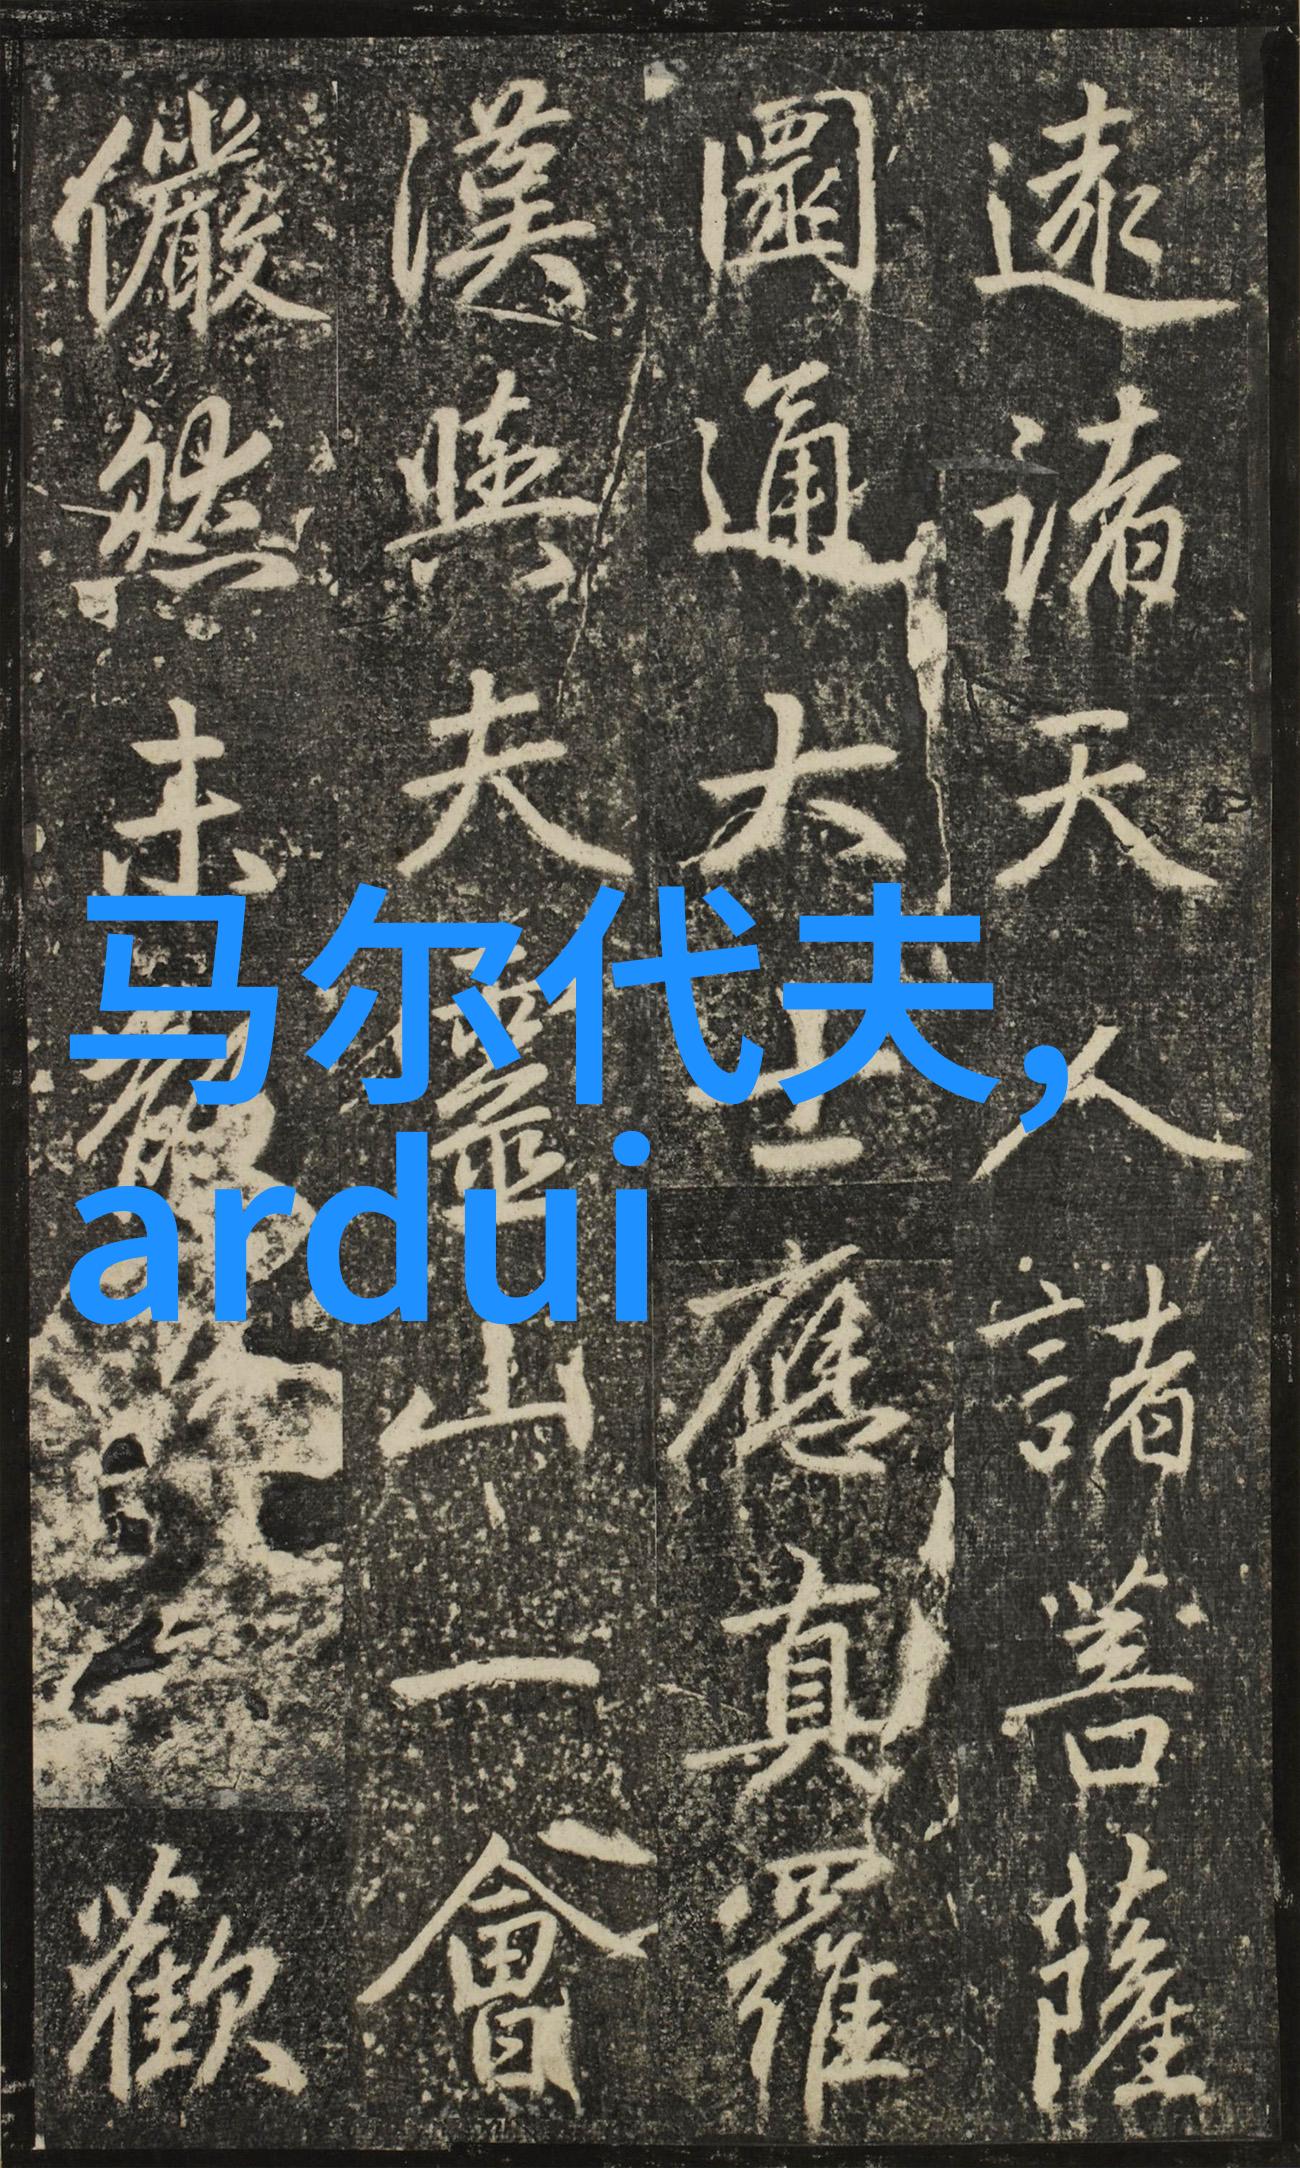 遠諸天人諸菩薩
圓通大士應真羅
漢與夫靈山一會
儼然未歡
马尔代夫，
ardui